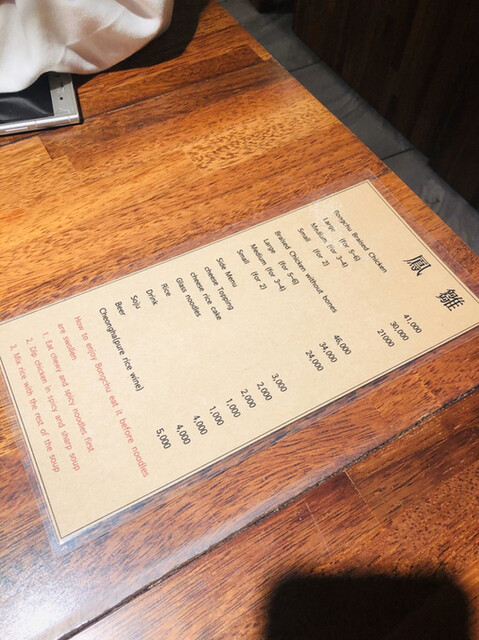 鳳雛
Bongchu Braised Chicken
Large (for 5~6) 41,000
Medium (for 3~4) 30,000
Small (for 2) 21000
Braised Chicken without bones
Large (for 5~6) 46,000
Medium (for 3~4) 34,000
Small (for 2) 24,000
Side Menu
cheese Topping 3,000
cheese rice cake 2,000
Glass noodles 2,000
Rice 1,000
Drink 1,000
Soju 4,000
Beer 4,000
Cheongha(pure rice wine) 5,000
How to enjoy Bongchu eat it before noodles
are swollen
1. Eat chewy and spicy noodles first
2. Dip chicken in spicy and sharp soup
3. Mix rice with the rest of the soup